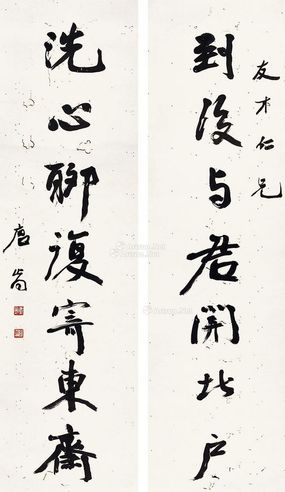 友才仁兄
到後与君開北户
洗心聊復寄東齋
唐肯